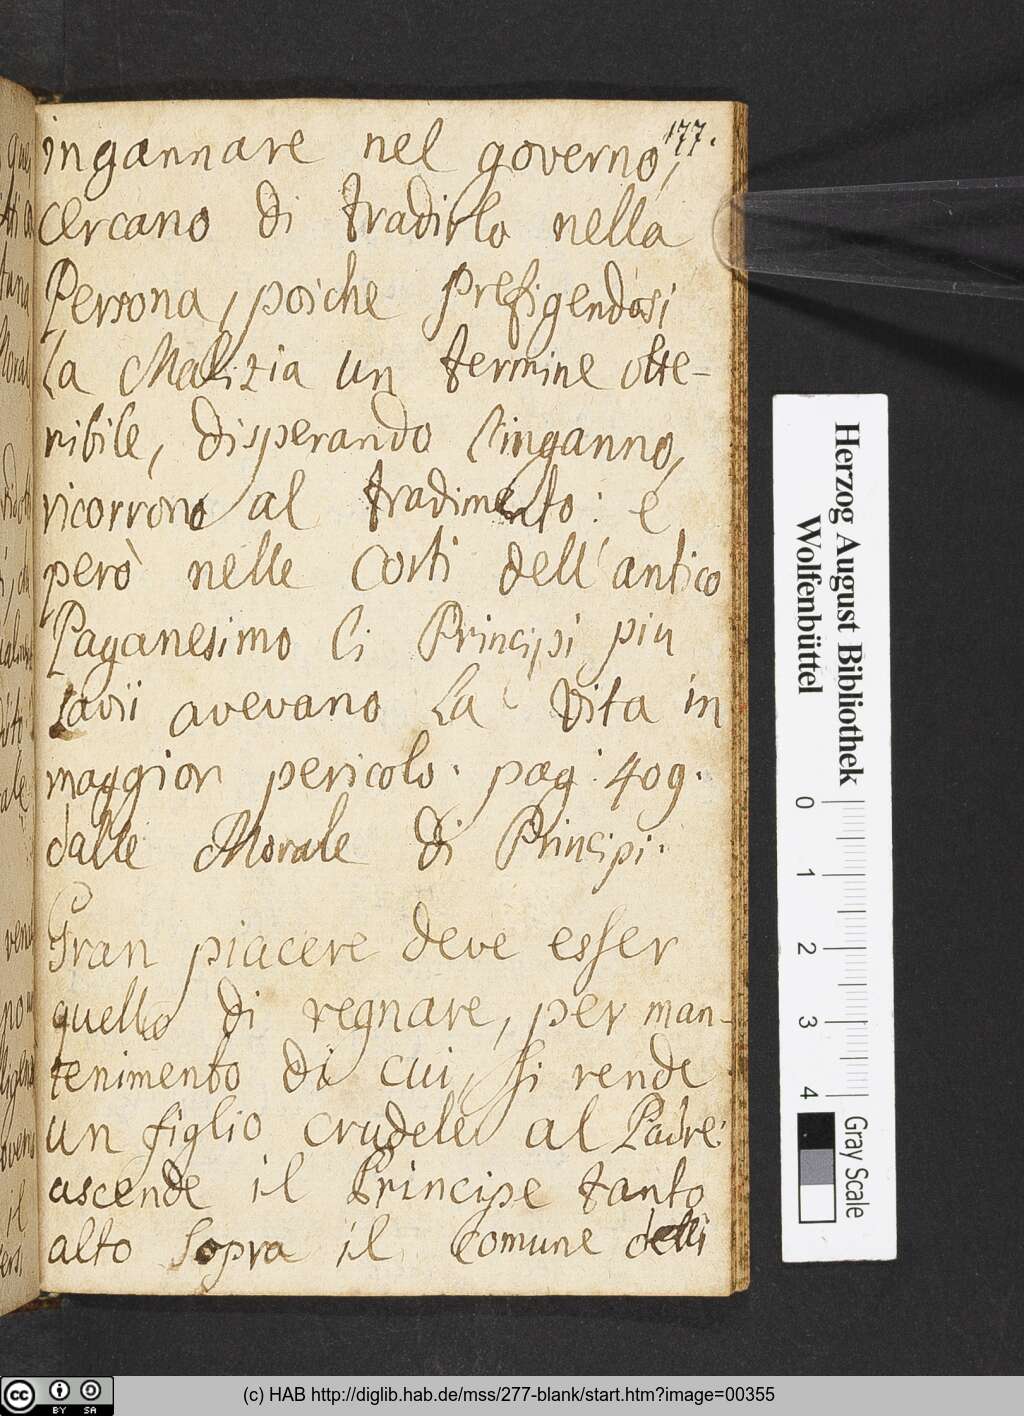 177.
ingannare nel governo,
cercano di tradirlo nella
Persona, poiche prefigendosi
la Malizia un termine otte-
nibile, disperando l'inganno,
ricorrono al tradimento: e
però nelle Corti dell'antico
Paganesimo li Principi piu
savii avevano la Vita in
maggior pericolo. pag. 409.
dalle Morale di Principi.
Gran piacere deve esser
quello di regnare, per man-
tenimento di cui, si rende
un figlio crudele al Padre:
ascende il Principe tanto
alto sopra il Comune delli
Herzog August Bibliothek
Wolfenbüttel
0 1 2 3 4
Gray Scale
cc BY SA
(c) HAB http://diglib.hab.de/mss/277-blank/start.htm?image=00355